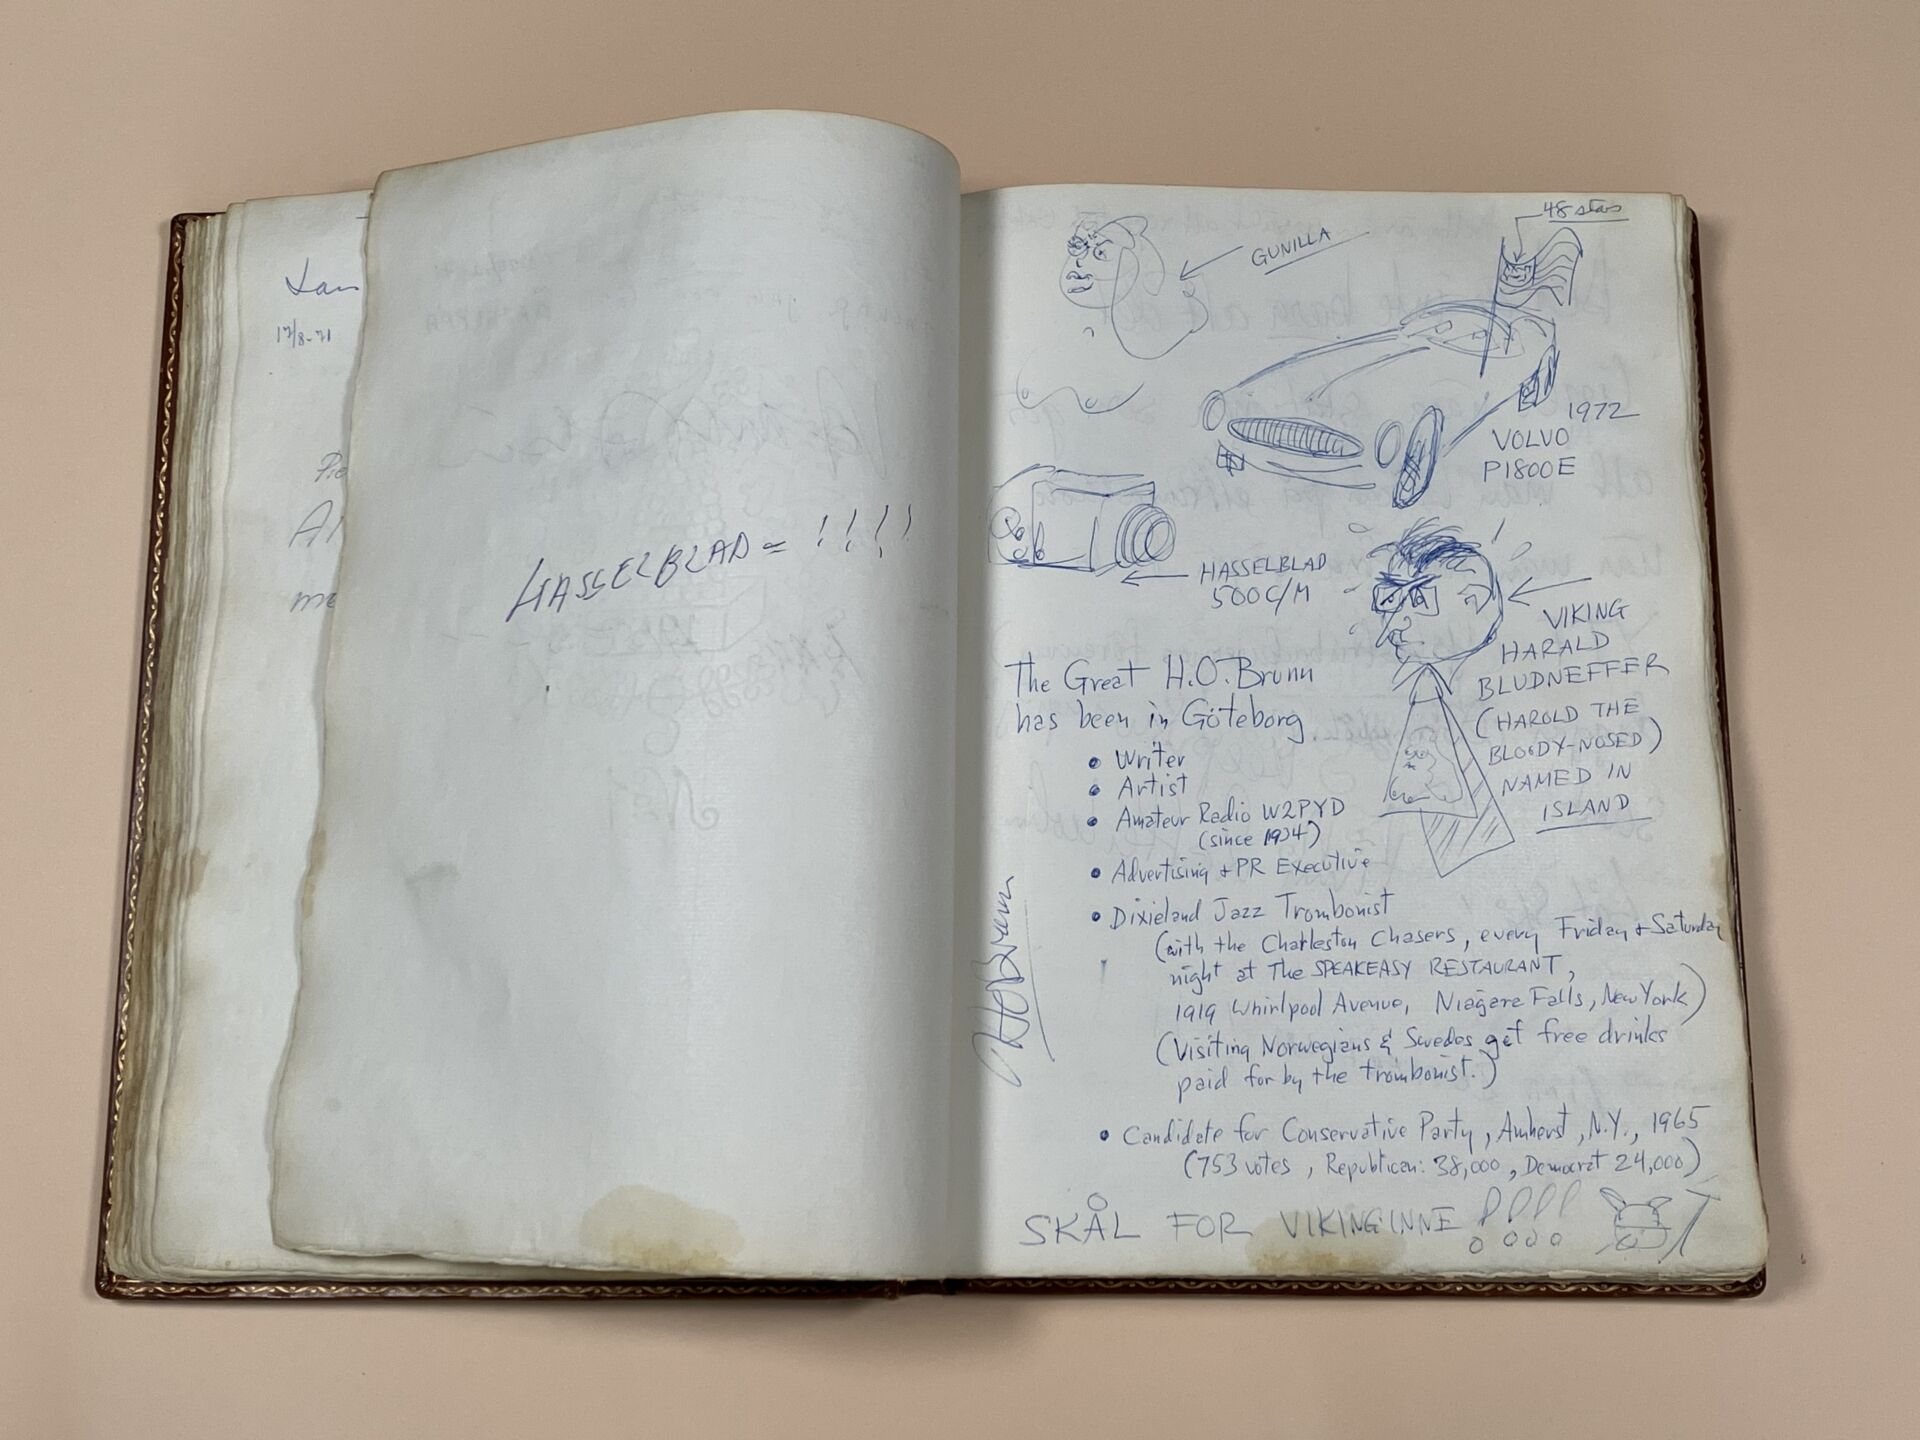 12/8-71
HASSELBLAD = !!!!
48 stars
GUNILLA
1972
VOLVO
P1800E
HASSELBLAD
500C/M
VIKING
HARALD
BLUDNEFFER
(HAROLD THE
BLOODY-NOSED)
NAMED IN
ISLAND
The Great H.O. Brunn
has been in Göteborg
• Writer
• Artist
• Amateur Radio W2PYD
(since 1934)
• Advertising + PR Executive
• Dixieland Jazz Trombonist
(with the Charleston Chasers, every Friday + Saturday
night at The SPEAKEASY RESTAURANT,
1919 Whirlpool Avenue, Niagara Falls, New York)
(Visiting Norwegians & Swedes get free drinks
paid for by the trombonist.)
• Candidate for Conservative Party, Amherst, N.Y., 1965
(753 votes, Republican: 38,000, Democrat 24,000)
SKÅL FOR VIKINGINNE !!!!
HO Brunn